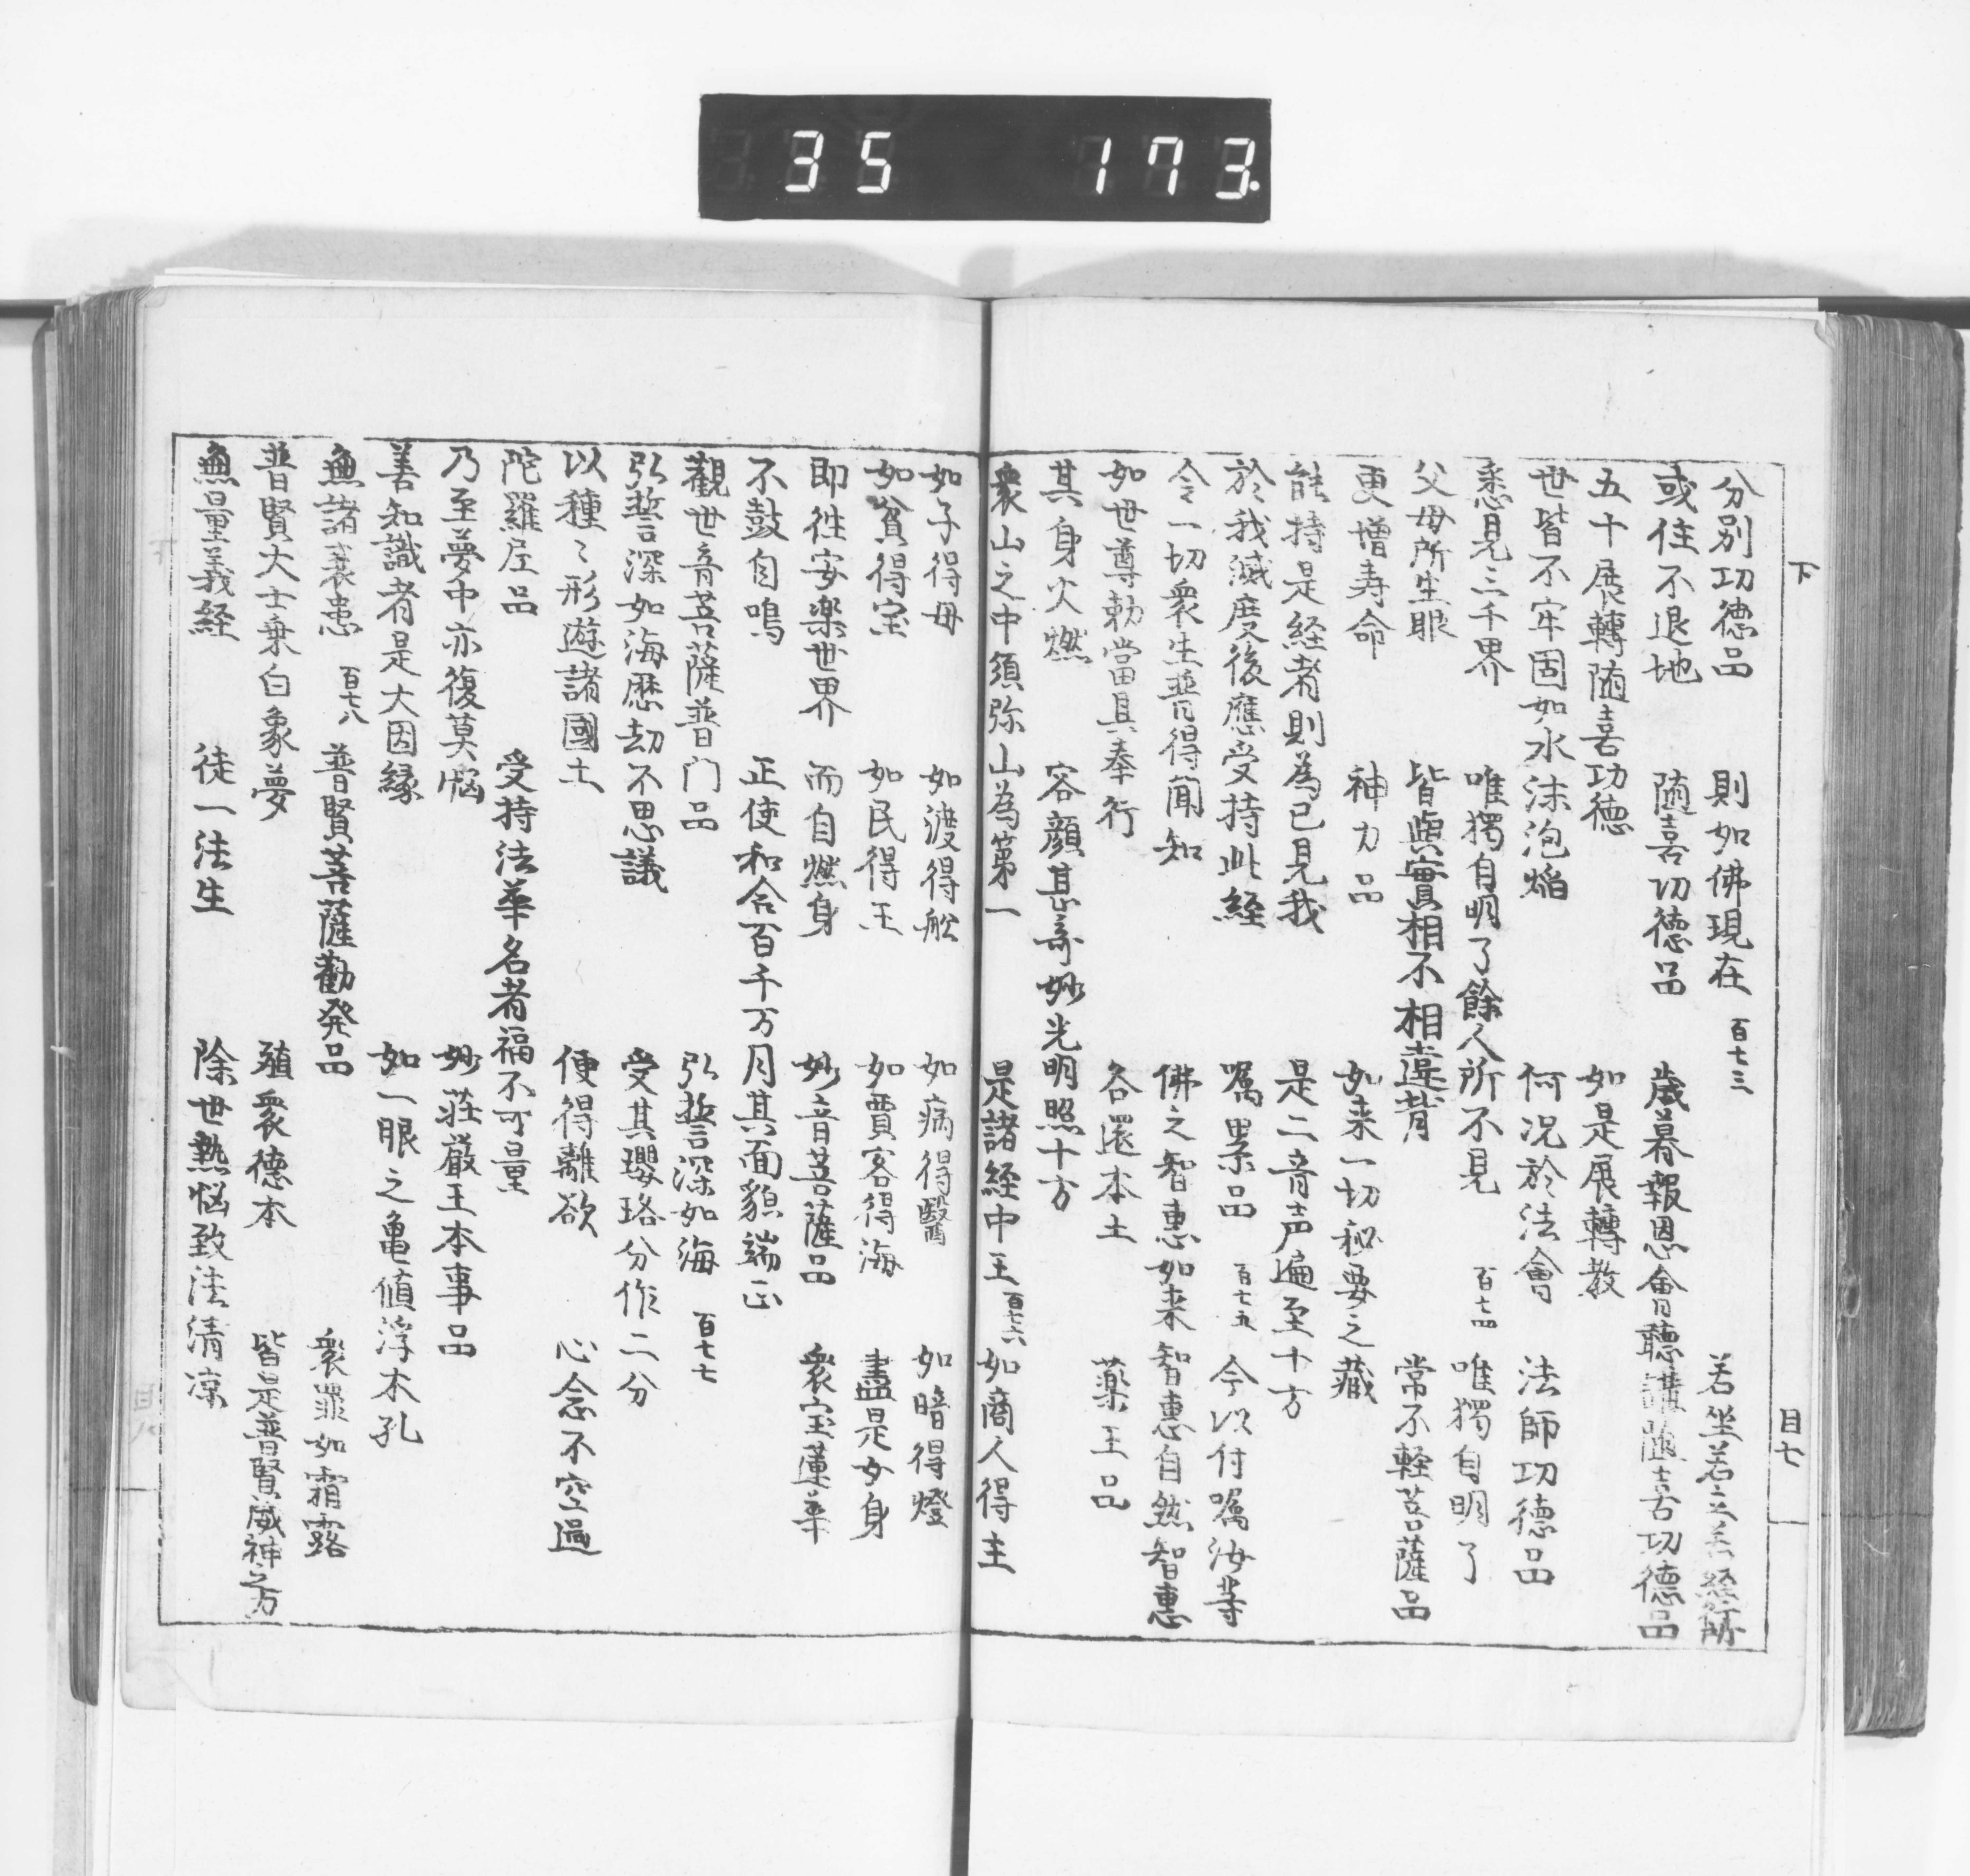 35 173.
下
目七
分別功徳品 則如佛現在 百七三 若坐若立若経行所
或住不退地 随喜功徳品 歳暮報恩會聴講随喜功徳品
五十展轉随喜功徳 如是展轉教
世皆不牢固如水沫泡焔 何况於法會 法師功徳品
悉見三千界 唯獨自明了餘人所不見 百七四 唯獨自明了
父母所生眼 皆與實相不相違背 常不軽菩薩品
更増寿命 神力品 如来一切秘要之蔵
能持是経者則為已見我 是二音声遍至十方
於我滅度後應受持此経 嘱累品 百七五 今以付嘱汝等
令一切衆生普得聞知 佛之智惠如来智惠自然智惠
如世尊勅當具奉行 各還本土 薬王品
其身火燃 容顔甚奇妙光明照十方
衆山之中須弥山為第一 是諸経中王 百七六 如商人得主
如子得母 如渡得舩 如病得醫 如暗得燈
如貧得宝 如民得王 如賈客得海 盡是女身
即徃安楽世界 而自燃身 妙音菩薩品 衆宝蓮華
不鼓自鳴 正使和合百千万月其面貌端正
觀世音菩薩普门品 弘誓深如海 百七七
弘誓深如海歴劫不思議 受其瓔珞分作二分
以種々形遊諸國土 便得離欲 心念不空過
陀羅尼品 受持法華名者福不可量
乃至夢中亦復莫悩 妙荘厳王本事品
善知識者是大因縁 如一眼之亀値浮木孔
無諸衰患 百七八 普賢菩薩勸発品 衆罪如霜露
普賢大士乗白象夢 殖衆徳本 皆是普賢威神之力
無量義経 従一法生 除世熱悩致法清凉